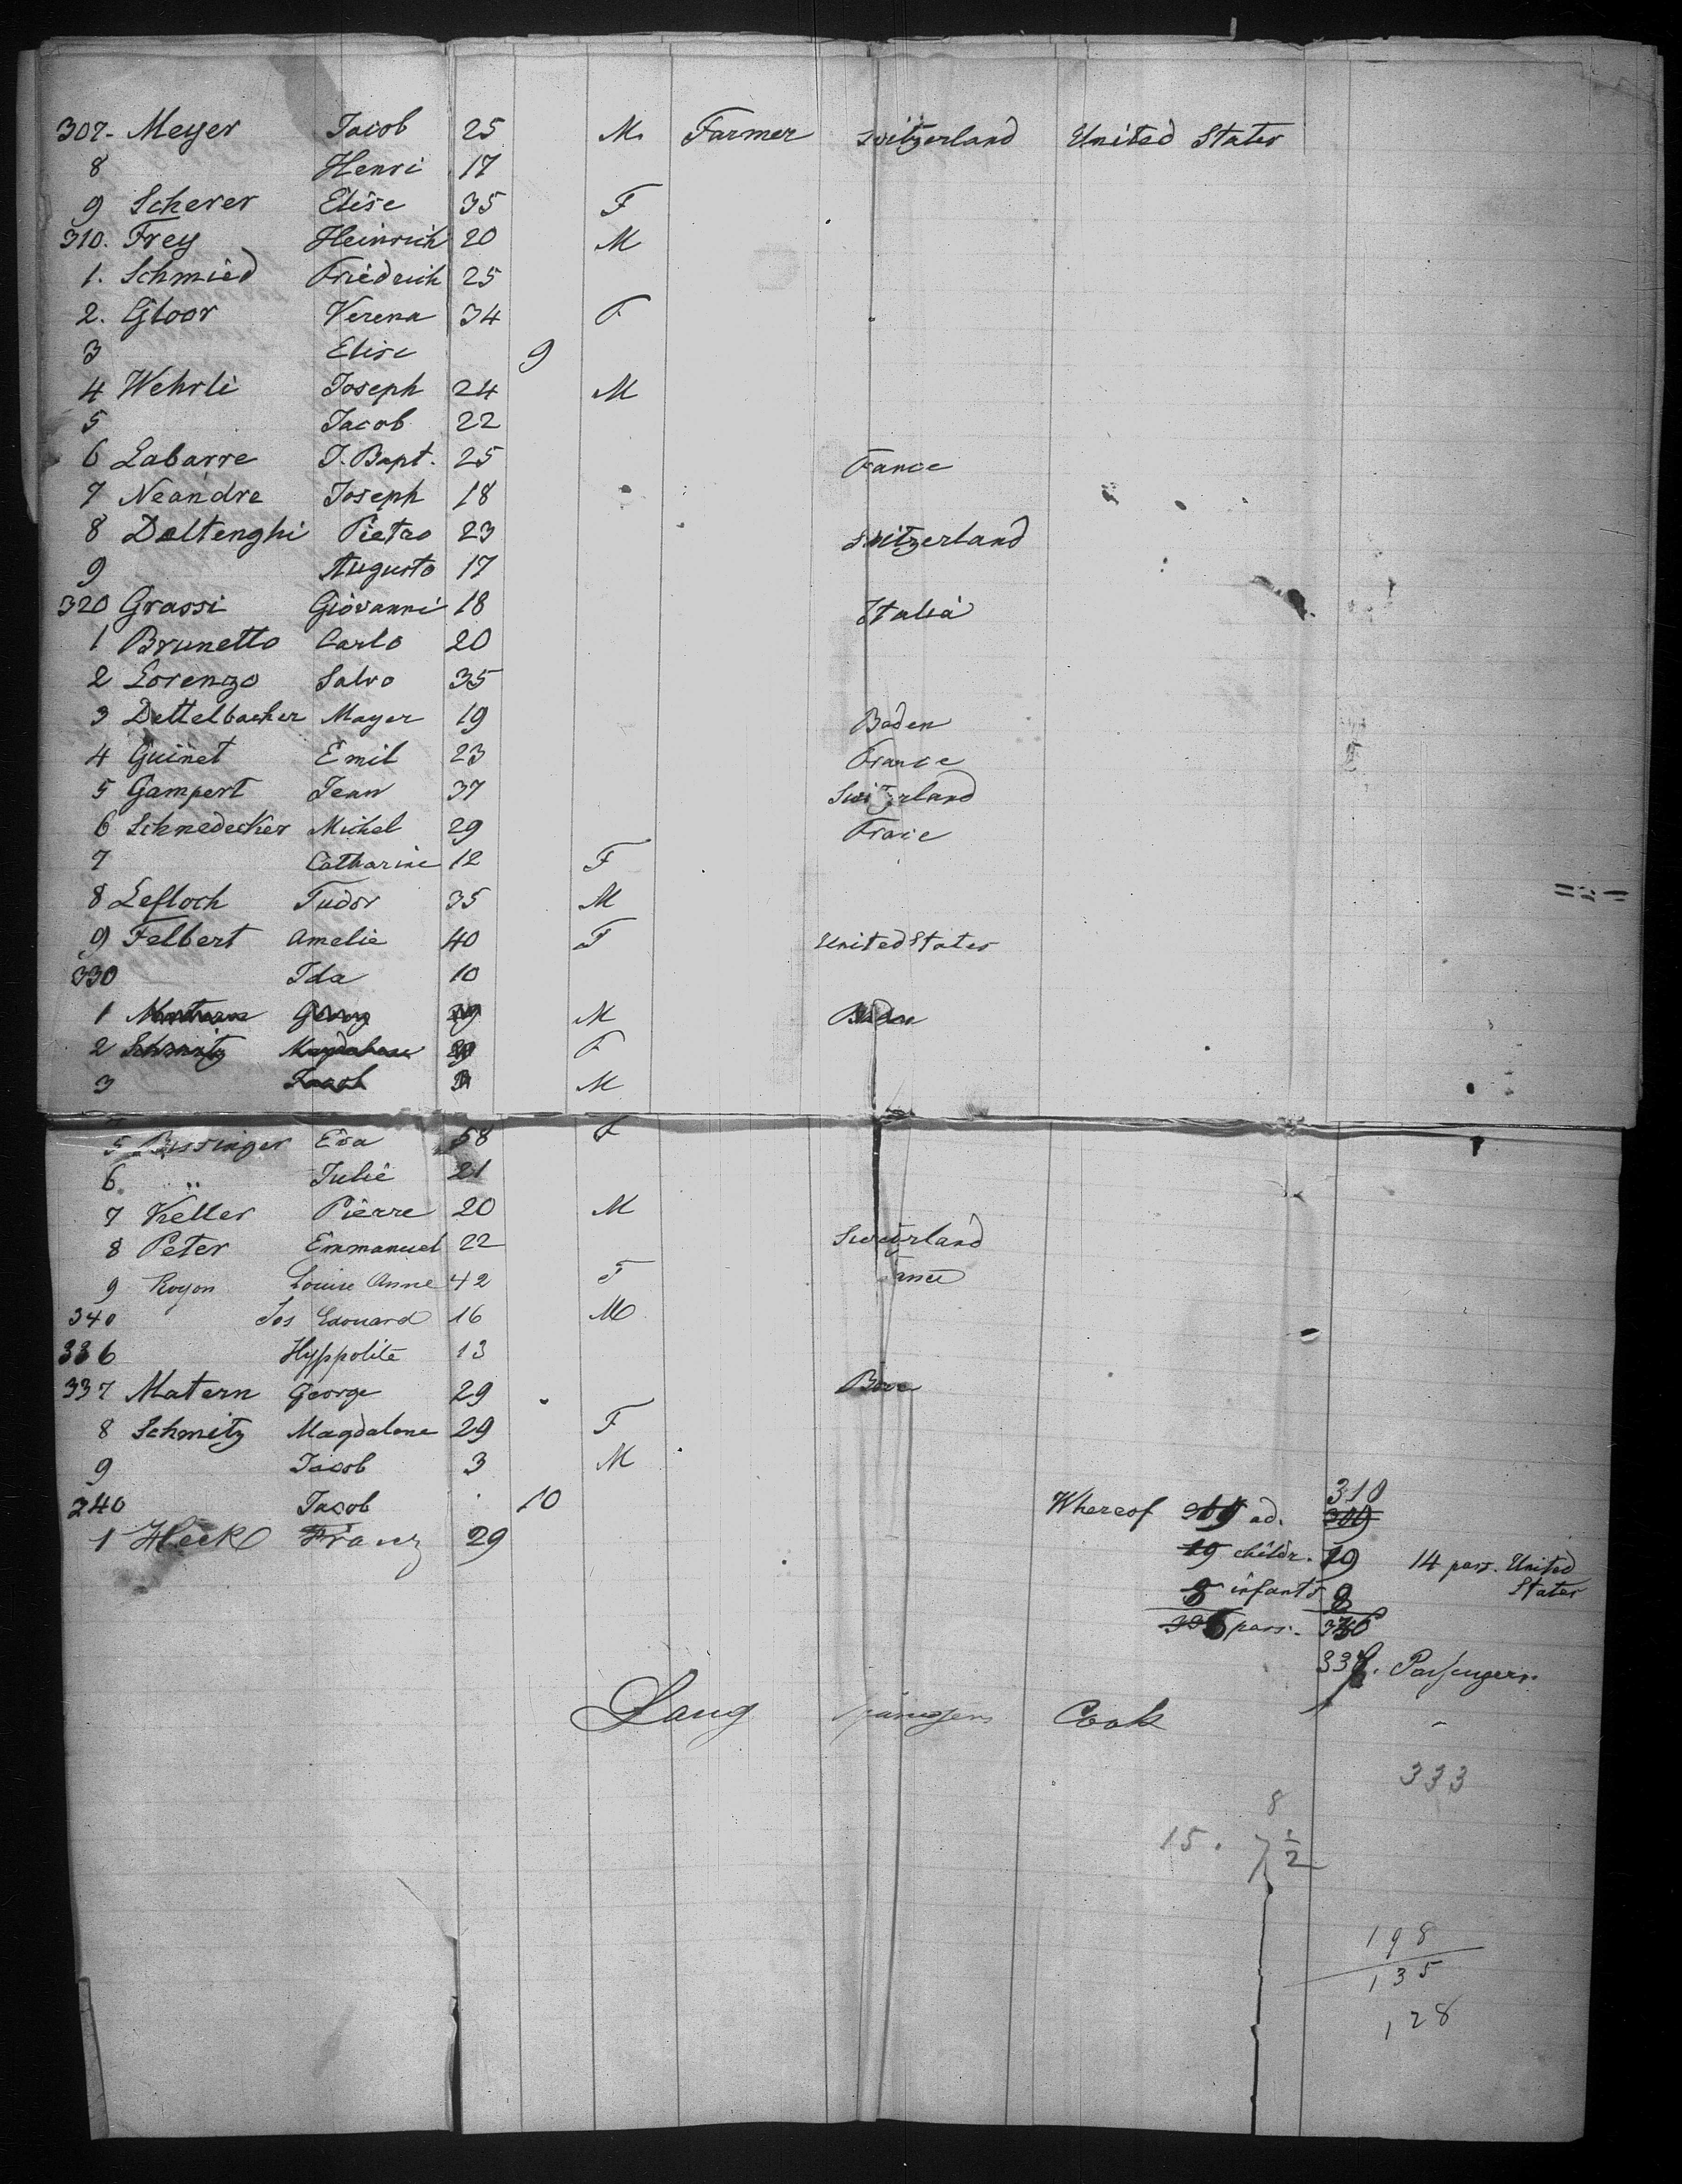 307- Meyer Jacob 25 M. Farmer Switzerland United States
8 Henri 17
9 Scherer Elise 35 F
310. Frey Heinrich 20 M
1. Schmied Friedrich 25
2. Gloor Verena 34 F
3 Elise 9
4 Wehrli Joseph 24 M
5 Jacob 22
6 Labarre J. Bapt. 25 France
7 Neandre Joseph 18
8 Deltenghi Pietro 23 Switzerland
9 Augusto 17
320 Grassi Giovanni 18 Italia
1 Brunetto Carlo 20
2 Lorenzo Salvo 35
3 Dettelbacher Mayer 19 Baden
4 Guinet Emil 23 France
5 Gampert Jean 37 Switzerland
6 Schnedecker Michel 29 France
7 Catharine 12 F
8 Lefloch Tudor 35 M
9 Felbert Amelie 40 F United States
330 Ida 10
1 Matern Georg 29 M Baden
2 Schmitz Magdalena 29 F
3 Jacob 3 M
5 Bissinger Eva 58 F
6 " Julie 21
7 Keller Pierre 20 M
8 Peter Emmanuel 22 Switzerland
9 Royon Louise Anne 42 F
340 Jos Edouard 16 M
336 Hyppolite 13
337 Matern George 29
8 Schmitz Magdalene 29 F
9 Jacob 3 M
340 Jacob 10
1 Heck Franz 29
Whereof 309 ad. 309 310
19 childr. 19 14 pass. United States
8 infants 8
336 pass. 336
337. Passengers.
Lang Cook
333
8
15. 7 1/2
198
135
128